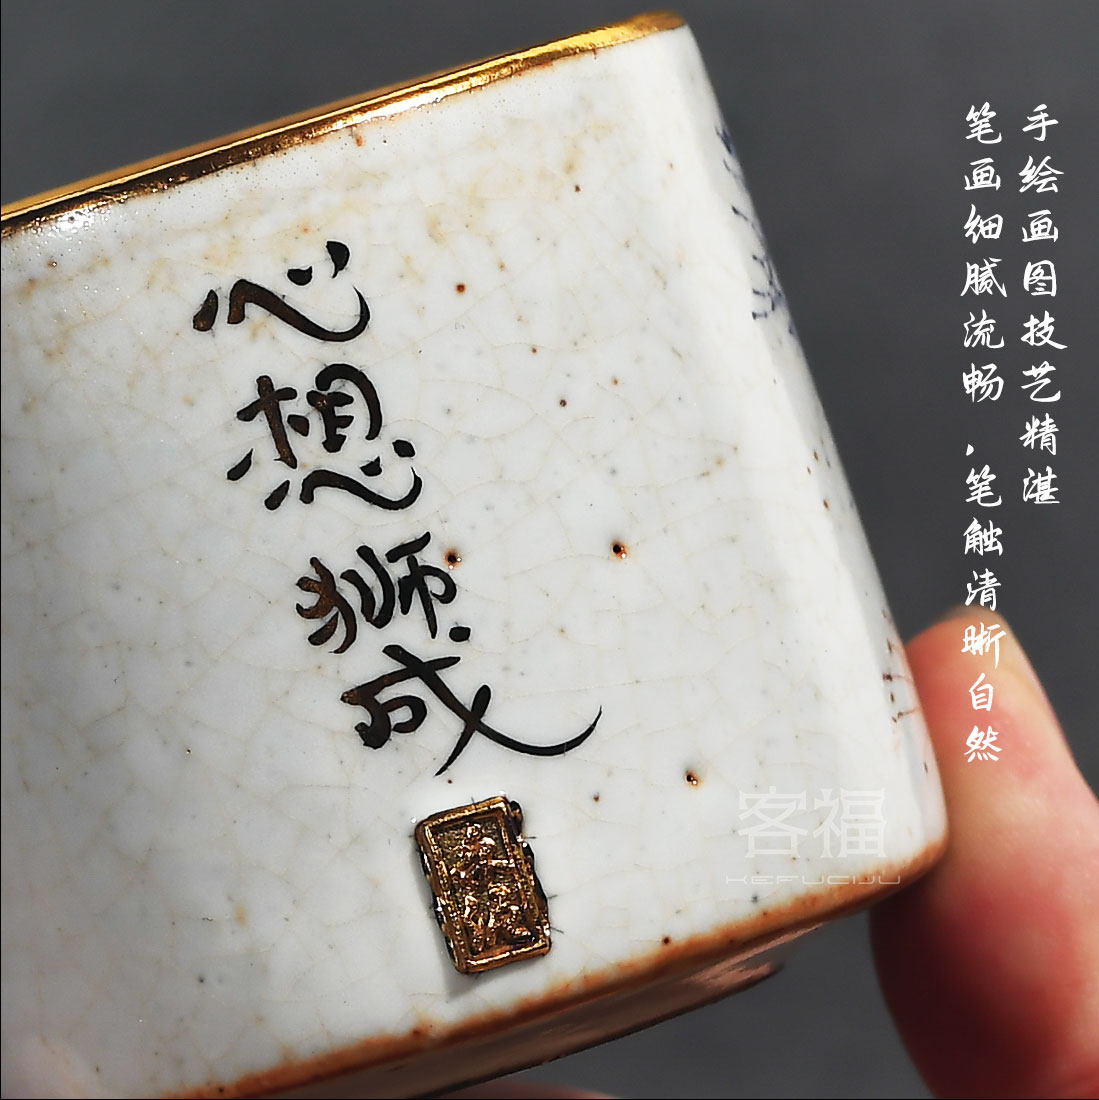 手绘画图技艺精湛
笔画细腻流畫，笔触清晰自然
心想狮成
客福
KEFUCIJU